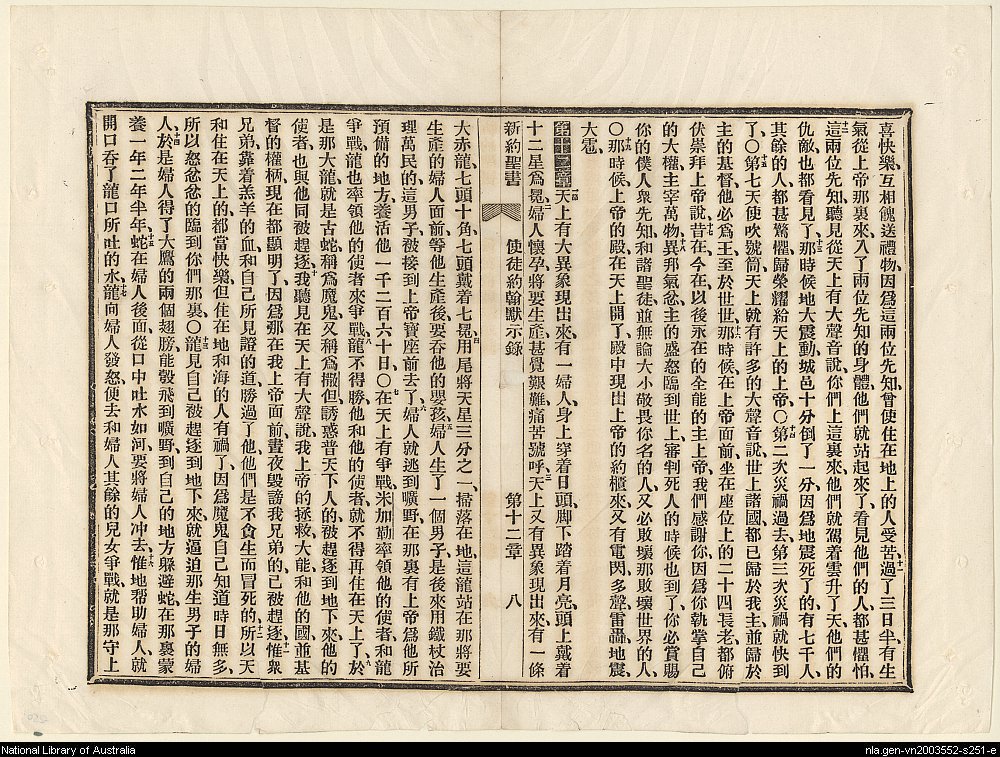 喜快樂、互相餽送禮物、因爲這兩位先知、曾使住在地上的人受苦、十一過了三日半、有生
氣從上帝那裏來、入了兩位先知的身體、他們就站起來了、看見他們的人、都甚懼怕、
十二這兩位先知、聽見從天上有大聲音說、你們上這裏來、他們就駕着雲升了天、他們的
仇敵、也都看見了、十三那時候地大震動、城邑十分倒了一分、因爲地震死了的、有七千人、
其餘的人、都甚驚懼、歸榮耀給天上的上帝、〇十四第二次災禍過去、第三次災禍就快到
了、〇十五第七天使吹號筒、天上就有許多的大聲音說、世上諸國、都已歸於我主、並歸於
主的基督、他必爲王、至於世世、十六那時候、在上帝面前、坐在座位上的二十四長老、都俯
伏崇拜上帝說、十七昔在今在以後永在的全能的主上帝、我們感謝你、因爲你執掌自己
的大權、主宰萬物、十八異邦氣忿、主的盛怒臨到世上、審判死人的時候也到了、你必賞賜
你的僕人衆先知和諸聖徒、並無論大小敬畏你名的人、又必敗壞那敗壞世界的人、
〇十九那時候、上帝的殿在天上開了、殿中現出上帝的約櫃來、又有電閃多聲雷轟地震
大雹、
第十二章一天上有大異象現出來、有一婦人、身上穿着日頭、脚下踏着月亮、頭上戴着
十二星爲冕、二婦人懷孕將要生產、甚覺艱難、痛苦號呼、三天上又有異象現出來、有一條
新約聖書 使徒約翰默示錄 第十二章 八
大赤龍、七頭十角、七頭戴着七冕、四用尾將天星三分之一、掃落在地、這龍站在那將要
生產的婦人面前、等他生產後、要吞他的嬰孩、五婦人生了一個男子、是後來用鐵杖治
理萬民的、這男子被接到上帝寶座前去了、六婦人就逃到曠野、在那裏有上帝爲他所
預備的地方、養活他一千二百六十日、〇七在天上有爭戰、米加勒率領他的使者和龍
爭戰、龍也率領他的使者來爭戰、八龍不得勝、他和他的使者、就不得再住在天上了、九於
是那大龍、就是古蛇、稱爲魔鬼、又稱爲撒但、誘惑普天下人的、被趕逐到地下來、他的
使者也與他同被趕逐、十我聽見在天上有大聲說、我上帝的拯救大能和他的國、並基
督的權柄、現在都顯明了、因爲那在我上帝面前、晝夜毀謗我兄弟的、已被趕逐、十一惟衆
兄弟、靠着羔羊的血、和自己所見證的道、勝過了他、他們是不貪生而冒死的、十二所以天
和住在天上的、都當快樂、但住在地和海的人有禍了、因爲魔鬼自己知道時日無多、
所以忿忿忿的臨到你們那裏、〇十三龍見自己被趕逐到地下來、就逼迫那生男子的婦
人、十四於是婦人得了大鷹的兩個翅膀、能彀飛到曠野、到自己的地方躱避蛇、在那裏蒙
養一年二年半年、十五蛇在婦人後面、從口中吐水如河、要將婦人冲去、十六惟地幫助婦人、就
開口吞了龍口所吐的水、十七龍向婦人發怒、便去和婦人其餘的兒女爭戰、就是那守上
National Library of Australia
nla.gen-vn2003552-s251-e